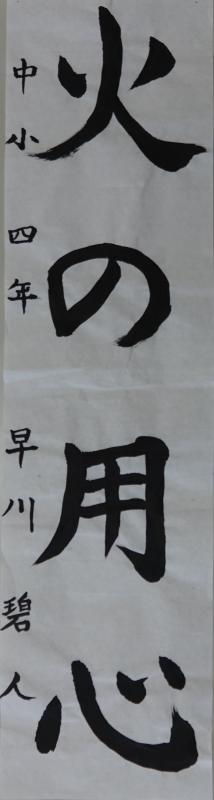 火の用心
中小 四年 早川碧人